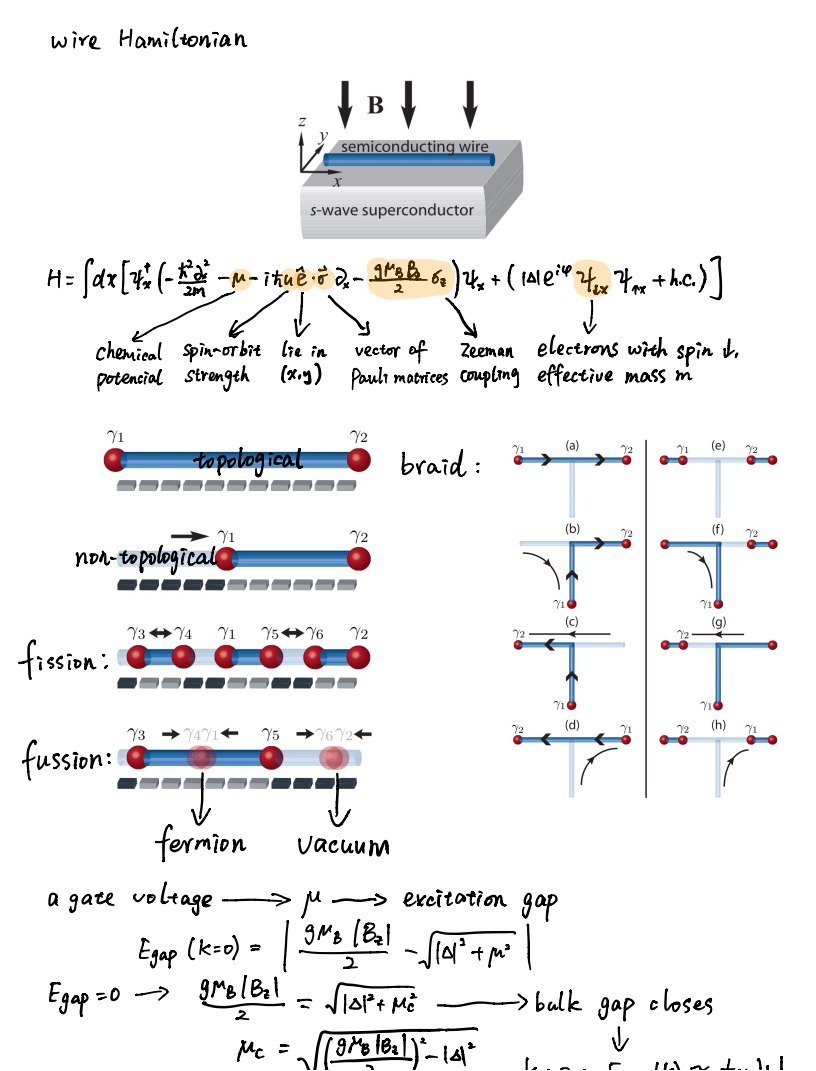 wire Hamiltonian
B
z
y
semiconducting wire
x
s-wave superconductor
H = ∫dx[ψₓ†(-ħ²∂ₓ²/2m - μ - iħu ê·σ⃗ ∂ₓ - gμ_B B_z/2 σ_z)ψₓ + (|Δ|e^{iφ} ψ_{↓x} ψ_{↑x} + h.c.)]
chemical potencial
spin-orbit strength
lie in (x,y)
vector of Pauli matrices
Zeeman coupling
electrons with spin ↓,
effective mass m
γ1 γ2
topological
→ γ1 γ2
non-topological
γ3 ↔ γ4 γ1 γ5 ↔ γ6 γ2
fission:
γ3 → γ4γ1 ← γ5 → γ6γ2 ←
fussion:
fermion vacuum
braid:
(a)
γ1 γ2
(b)
γ2
γ1
(c)
γ2
γ1
(d)
γ2 γ1
(e)
γ1 γ2
(f)
γ2
γ1
(g)
γ2
γ1
(h)
γ2 γ1
a gate voltage → μ → excitation gap
Egap (k=0) = | gμ_B |B_z|/2 - √(|Δ|² + μ²) |
Egap=0 → gμ_B|B_z|/2 = √(|Δ|² + μ_c²) → bulk gap closes
μ_c = √((gμ_B|B_z|/2)² - |Δ|²)